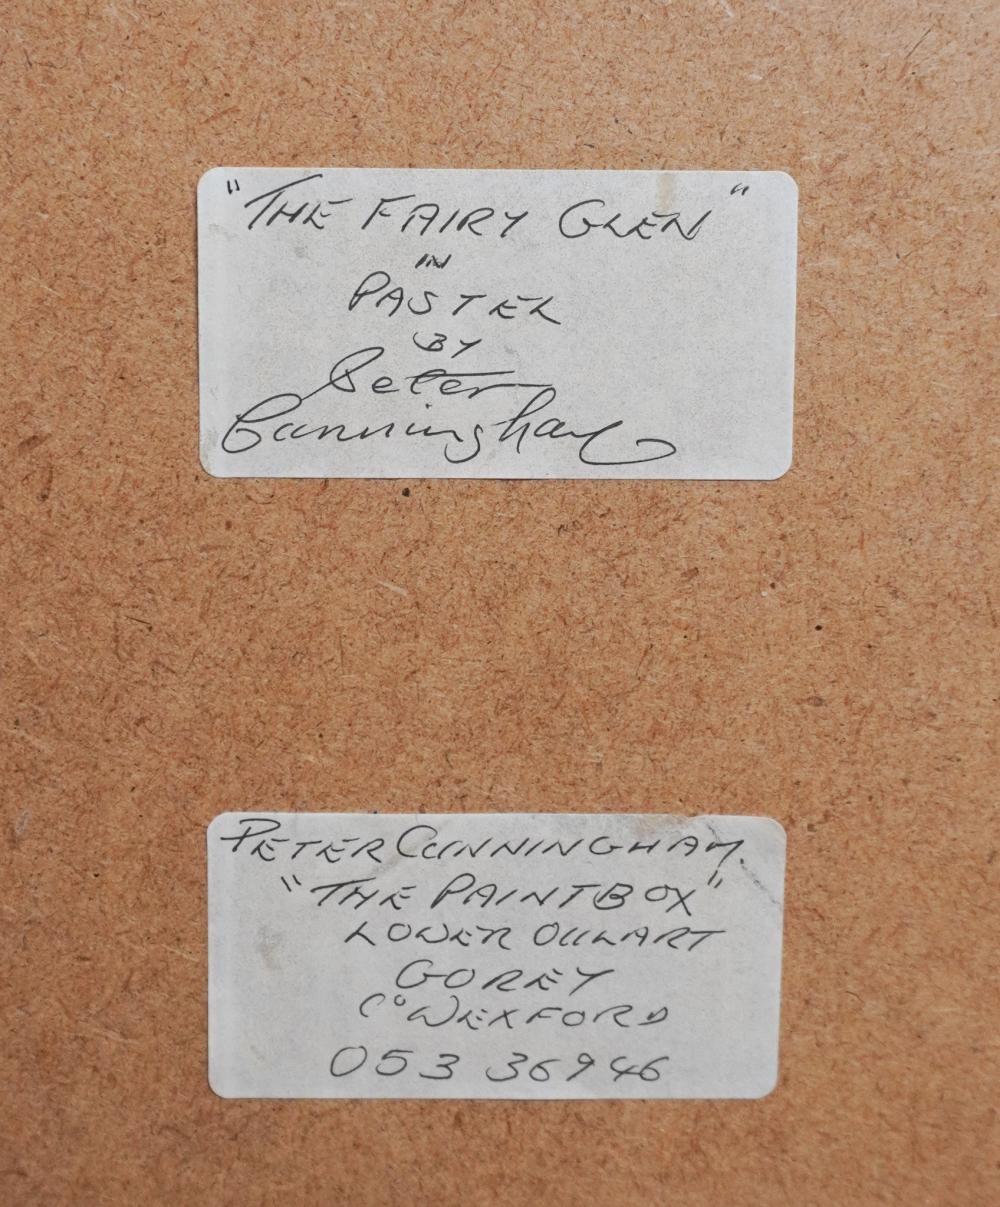 "THE FAIRY GLEN"
IN
PASTEL
BY
Peter
Cunningham
PETER CUNNINGHAM.
"THE PAINTBOX"
LOWER OULART
GOREY
Cº WEXFORD
053 36946